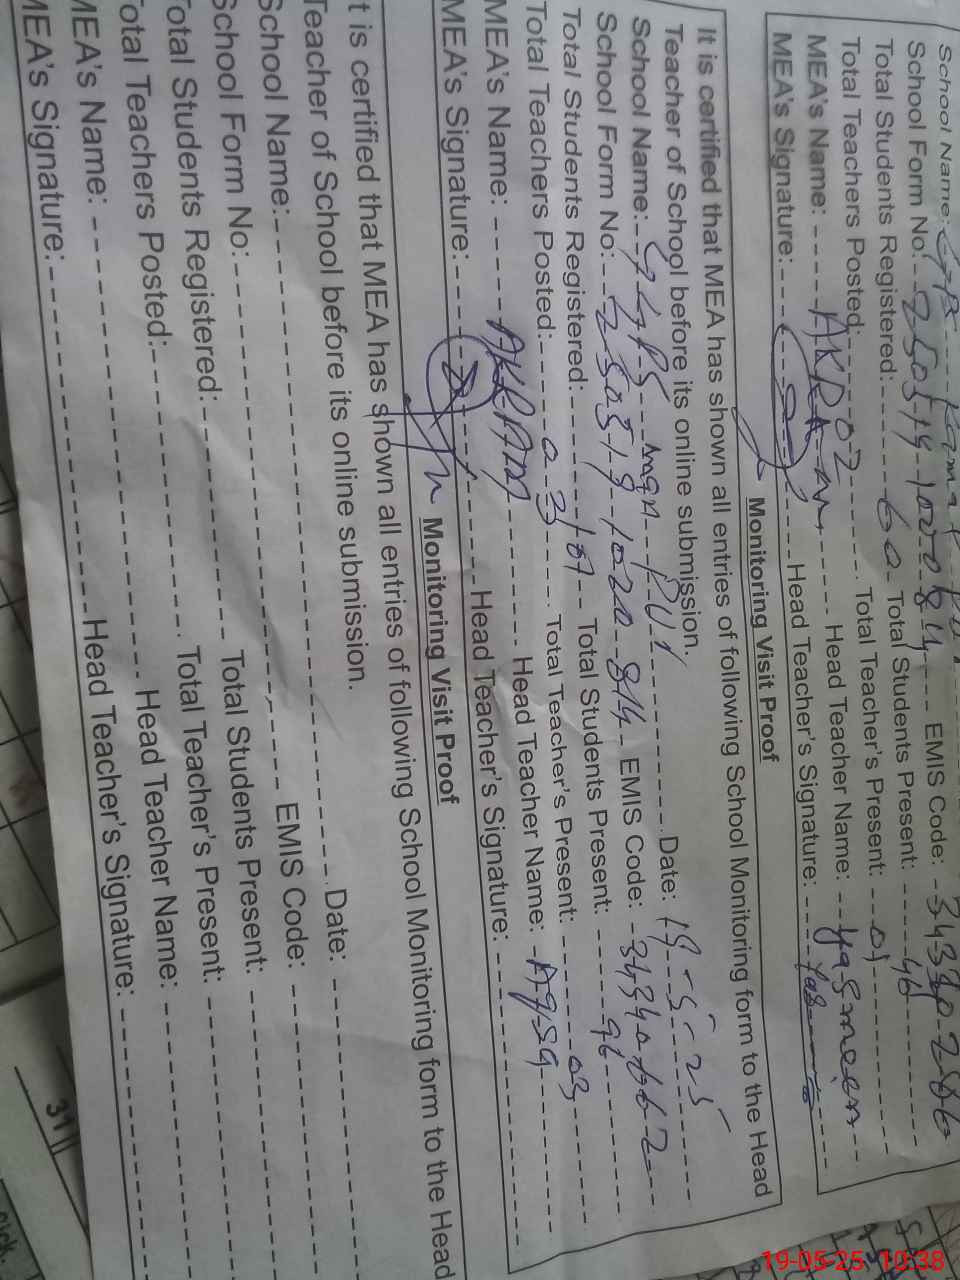 School Name:
School Form No: 2505191020084 EMIS Code:
Total Students Registered: 60 Total Students Present: 46
Total Teachers Posted: 02 Total Teacher's Present: 01
MEA's Name: AKRAM Head Teacher Name: Yasmeen
MEA's Signature: Head Teacher's Signature: Yas
Monitoring Visit Proof
It is certified that MEA has shown all entries of following School Monitoring form to the Head
Teacher of School before its online submission.
School Name: Date: 19-5-25
School Form No: 2505191020814 EMIS Code:
Total Students Registered: 107 Total Students Present: 96
Total Teachers Posted: 03 Total Teacher's Present: 03
MEA's Name: AKRAM Head Teacher Name: Aqsa
MEA's Signature: Head Teacher's Signature:
Monitoring Visit Proof
It is certified that MEA has shown all entries of following School Monitoring form to the Head
Teacher of School before its online submission.
School Name: Date:
School Form No: EMIS Code:
Total Students Registered: Total Students Present:
Total Teachers Posted: Total Teacher's Present:
MEA's Name: Head Teacher Name:
MEA's Signature: Head Teacher's Signature:
31
19-05-25 10:38